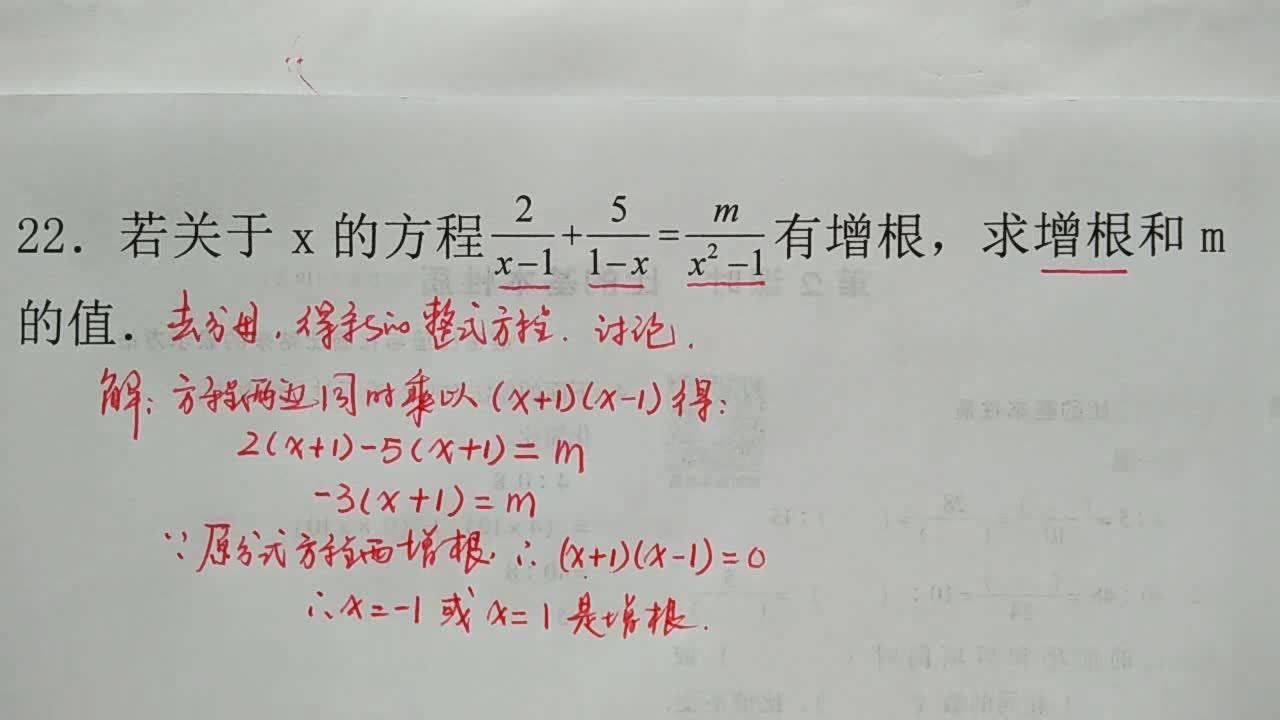 22. 若关于 x 的方程 \frac{2}{x-1}+\frac{5}{1-x}=\frac{m}{x^2-1} 有增根，求增根和 m
的值. 去分母，得新的整式方程. 讨论.
解: 方程两边同时乘以 (x+1)(x-1) 得:
2(x+1)-5(x+1)=m
-3(x+1)=m
∵原分式方程有增根, ∴(x+1)(x-1)=0
∴x=-1 或 x=1 是增根.